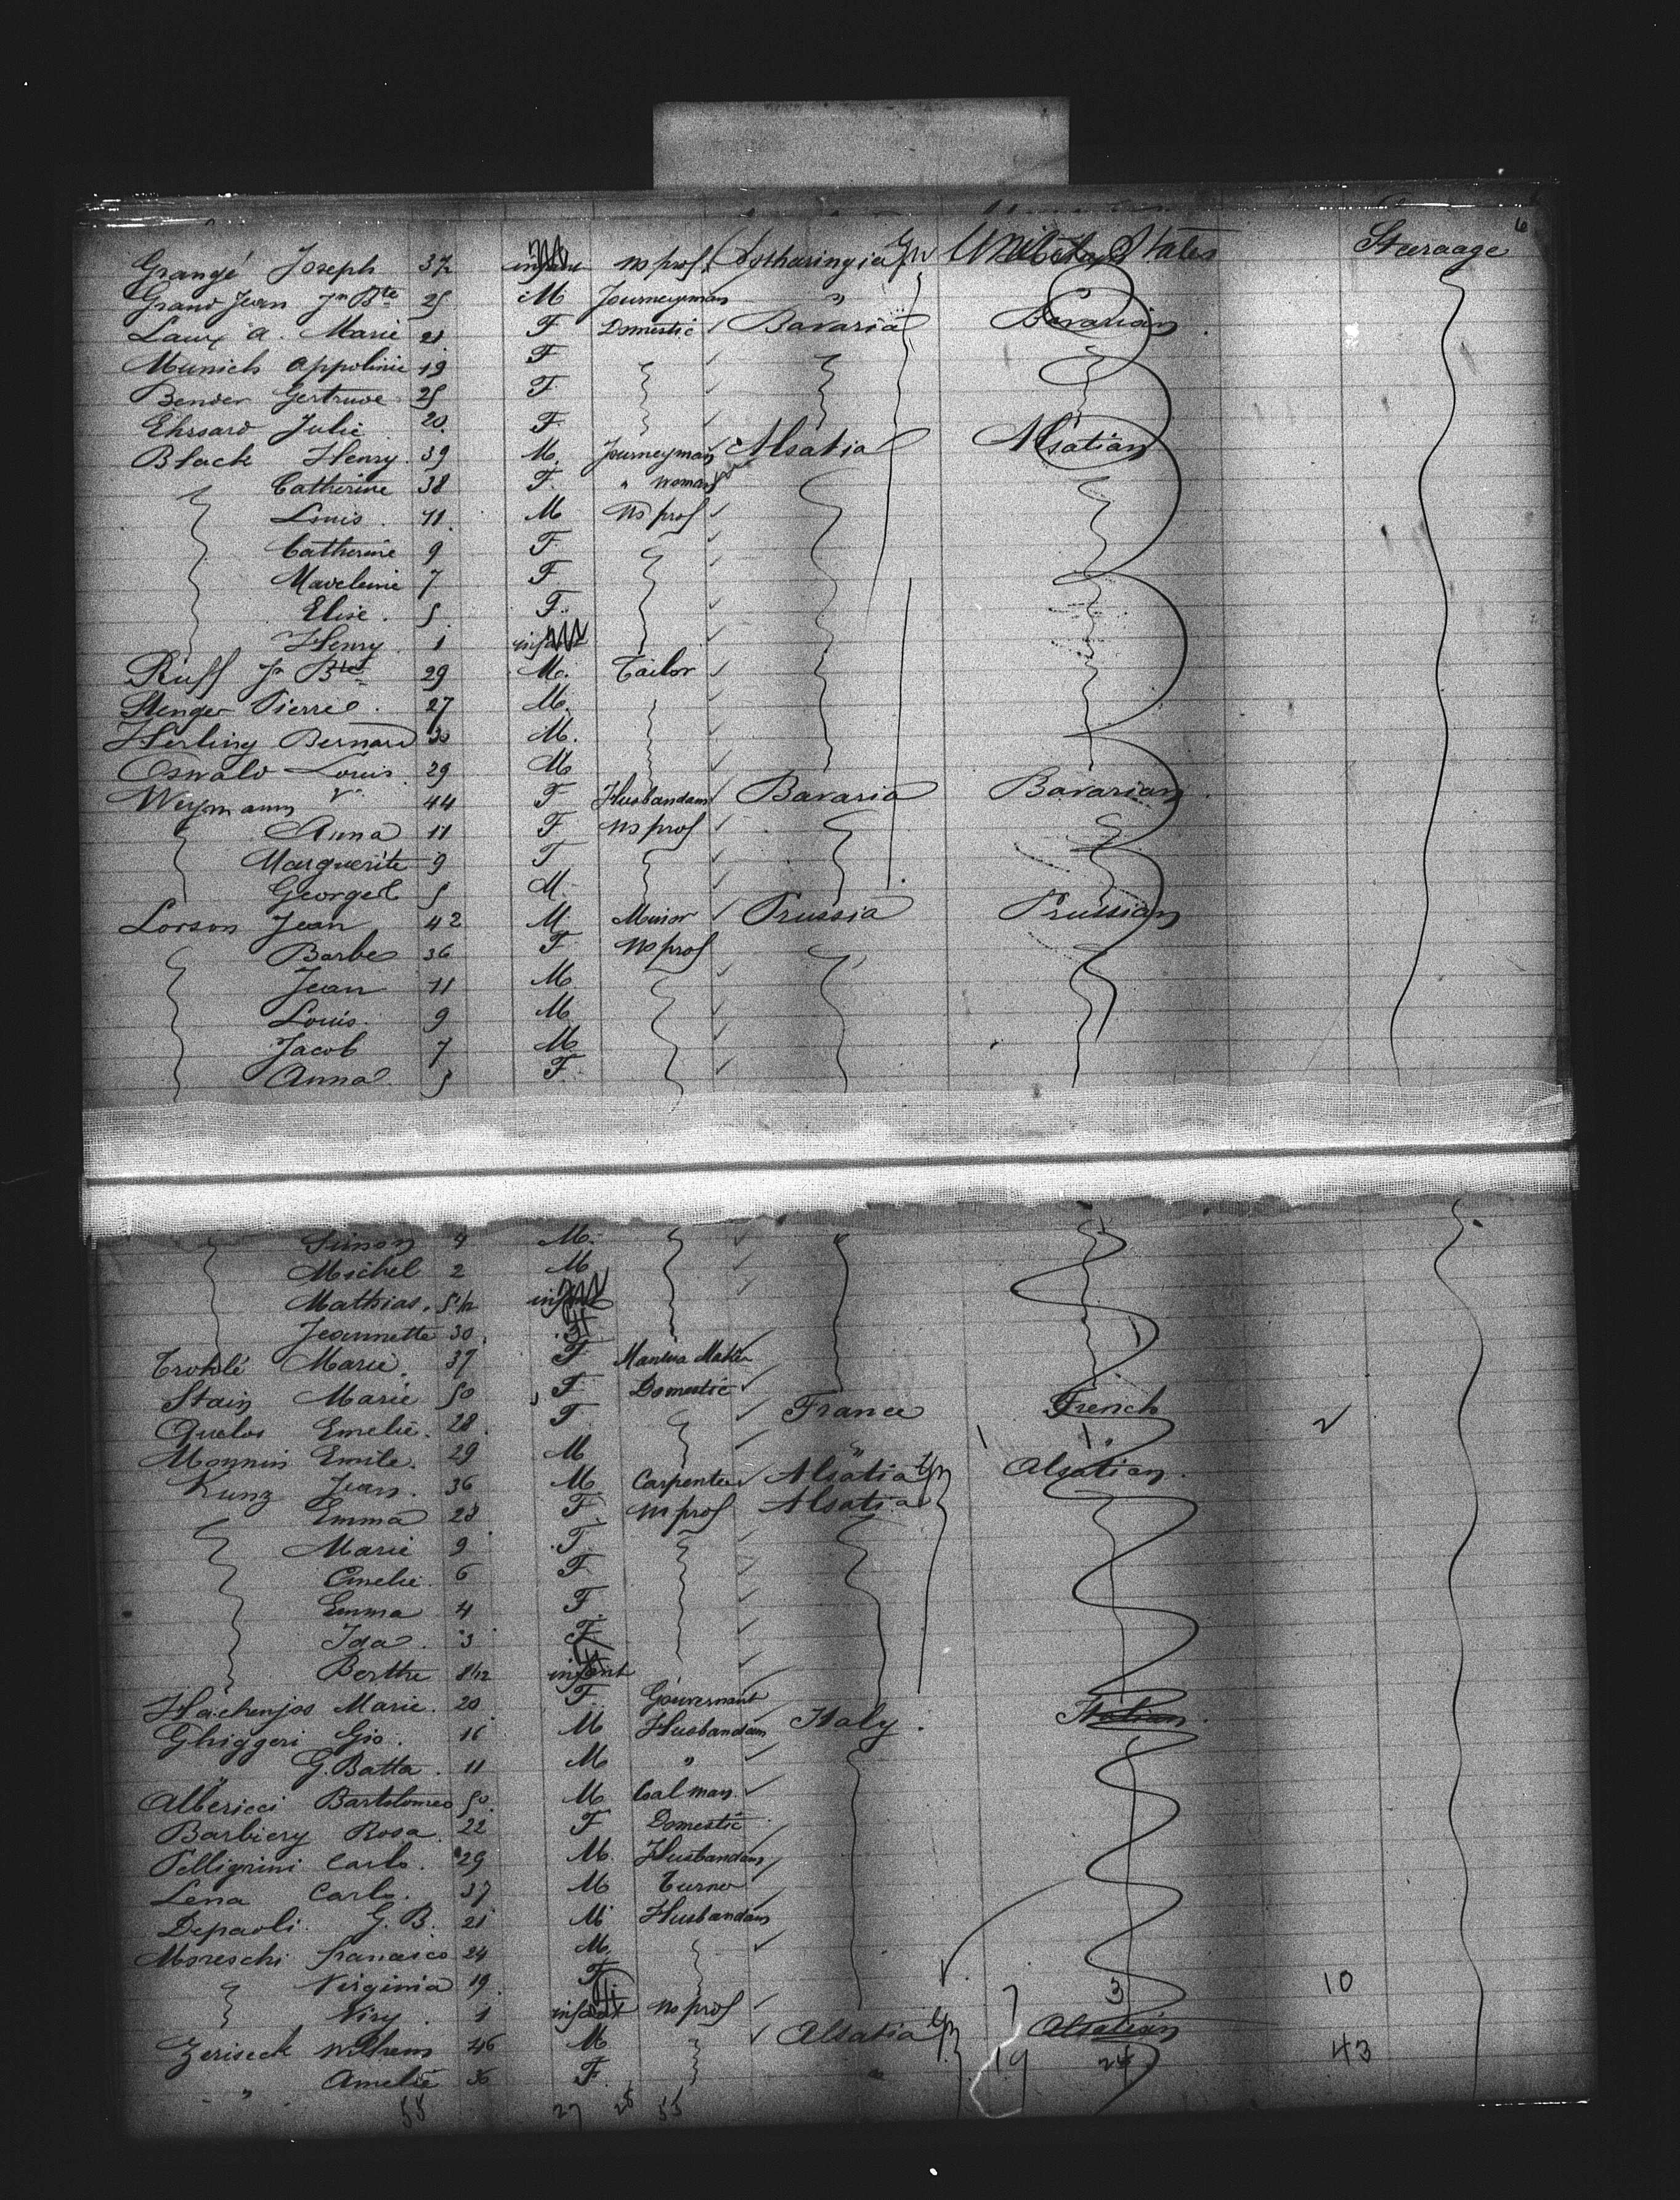 6
Grangé Joseph 3 1/2 infant no prof. Lotharingia Gn United States Steeraage
Grand Jean Jn Bte 25 M Journeyman "
Laux a. Marie 21 F Domestic Bavaria Bavarian
Munich Appolinie 19 F
Bender Gertrude 25 F
Ehrsard Julie 20 F
Black Henry 39 M Journeyman Alsatia Alsatian
Catherine 38 F " woman
Louis 11 M no prof
Catherine 9 F
Madeleine 7 F
Elise 5 F
Henry 1 infant
Rieff Jn Bte 29 M Tailor
Stenger Pierre 27 M
Herling Bernard 30 M
Oswald Louis 29 M
Weymann Ve 44 F Husbandam Bavaria Bavarian
Anna 11 F no prof
Marguerite 9 F
George 5 M
Lorson Jean 42 M Minor Prussia Prussian
Barbe 36 F no prof
Jean 11 M
Louis 9 M
Jacob 7 M
Anna 5 F
Simon 4 M
Michel 2 M
Mathias 5/12 infant
Jeannette 30
Marie 37 F Mantua Maker
Stain Marie 50 F Domestic
Emelie 28 F France French
Monnin Emile 29 M " "
Kunz Jean 36 M Carpenter Alsatia Gn Alsatian
Emma 28 F no prof Alsatia
Marie 9 F
Emelie 6 F
Emma 4 F
Ida 3 F
Berthe 8/12 infant
Hachenjos Marie 20 F Gouvernant
Ghiggeri Gio 16 M Husbandam Italy Italian
" G. Batta 11 M "
Albericci Bartolomeo 50 M Calman
Barbiery Rosa 22 F Domestic
Pelligrini Carlo 29 M Husbandam
Lena Carlo 37 M Turner
Depaoli G. B. 21 M Husbandam
Moreschi francisco 24 M
Virginia 19 F 3 10
1 infant no prof
Zeriseck Wilhem 46 M Alsatia Gn Alsatian
" Amelie 36 F " 19 24 43
55 27 28 55